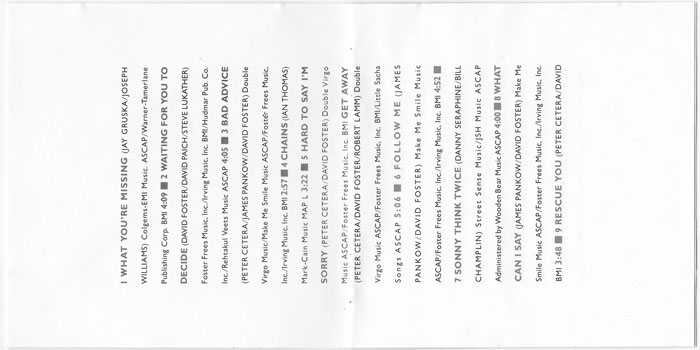 1 WHAT YOU'RE MISSING (JAY GRUSKA/JOSEPH
WILLIAMS) Colgems-EMI Music ASCAP/Warner-Tamerlane
Publishing Corp. BMI 4:09 ■ 2 WAITING FOR YOU TO
DECIDE (DAVID FOSTER/DAVID PAICH/STEVE LUKATHER)
Foster Frees Music, Inc./Irving Music, Inc. BMI/Hudmar Pub. Co.
Inc./Rehtakul Veets Music ASCAP 4:05 ■ 3 BAD ADVICE
(PETER CETERA/JAMES PANKOW/DAVID FOSTER) Double
Virgo Music/Make Me Smile Music ASCAP/Foster Frees Music,
Inc./Irving Music, Inc. BMI 2:57 ■ 4 CHAINS (IAN THOMAS)
Mark-Cain Music MAP L 3:22 ■ 5 HARD TO SAY I'M
SORRY (PETER CETERA/DAVID FOSTER) Double Virgo
Music ASCAP/Foster Frees Music, Inc. BMI GET AWAY
(PETER CETERA/DAVID FOSTER/ROBERT LAMM) Double
Virgo Music ASCAP/Foster Frees Music, Inc. BMI/Little Sacha
Songs ASCAP 5:06 ■ 6 FOLLOW ME (JAMES
PANKOW/DAVID FOSTER) Make Me Smile Music
ASCAP/Foster Frees Music, Inc./Irving Music, Inc. BMI 4:52 ■
7 SONNY THINK TWICE (DANNY SERAPHINE/BILL
CHAMPLIN) Street Sense Music/JSH Music ASCAP
Administered by Wooden Bear Music ASCAP 4:00 ■ 8 WHAT
CAN I SAY (JAMES PANKOW/DAVID FOSTER) Make Me
Smile Music ASCAP/Foster Frees Music, Inc./Irving Music, Inc.
BMI 3:48 ■ 9 RESCUE YOU (PETER CETERA/DAVID